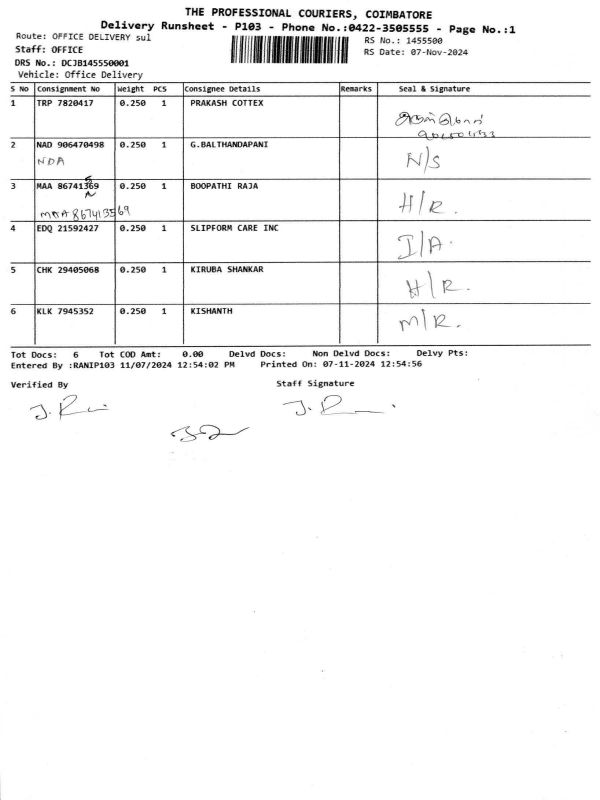 THE PROFESSIONAL COURIERS, COIMBATORE
Delivery Runsheet - P103 - Phone No.:0422-3505555 - Page No.:1
Route: OFFICE DELIVERY sul
RS No.: 1455500
Staff: OFFICE
RS Date: 07-Nov-2024
DRS No.: DCJB145550001
Vehicle: Office Delivery
S No Consignment No Weight PCS Consignee Details Remarks Seal & Signature
1 TRP 7820417 0.250 1 PRAKASH COTTEX
2 NAD 906470498 0.250 1 G.BALTHANDAPANI N/S
NDA
3 MAA 86741369 0.250 1 BOOPATHI RAJA H/R.
5
MAA 867413569
4 EDQ 21592427 0.250 1 SLIPFORM CARE INC I/A.
5 CHK 29405068 0.250 1 KIRUBA SHANKAR H/R.
6 KLK 7945352 0.250 1 KISHANTH M/R.
Tot Docs: 6 Tot COD Amt: 0.00 Delvd Docs: Non Delvd Docs: Delvy Pts:
Entered By :RANIP103 11/07/2024 12:54:02 PM Printed On: 07-11-2024 12:54:56
Verified By Staff Signature